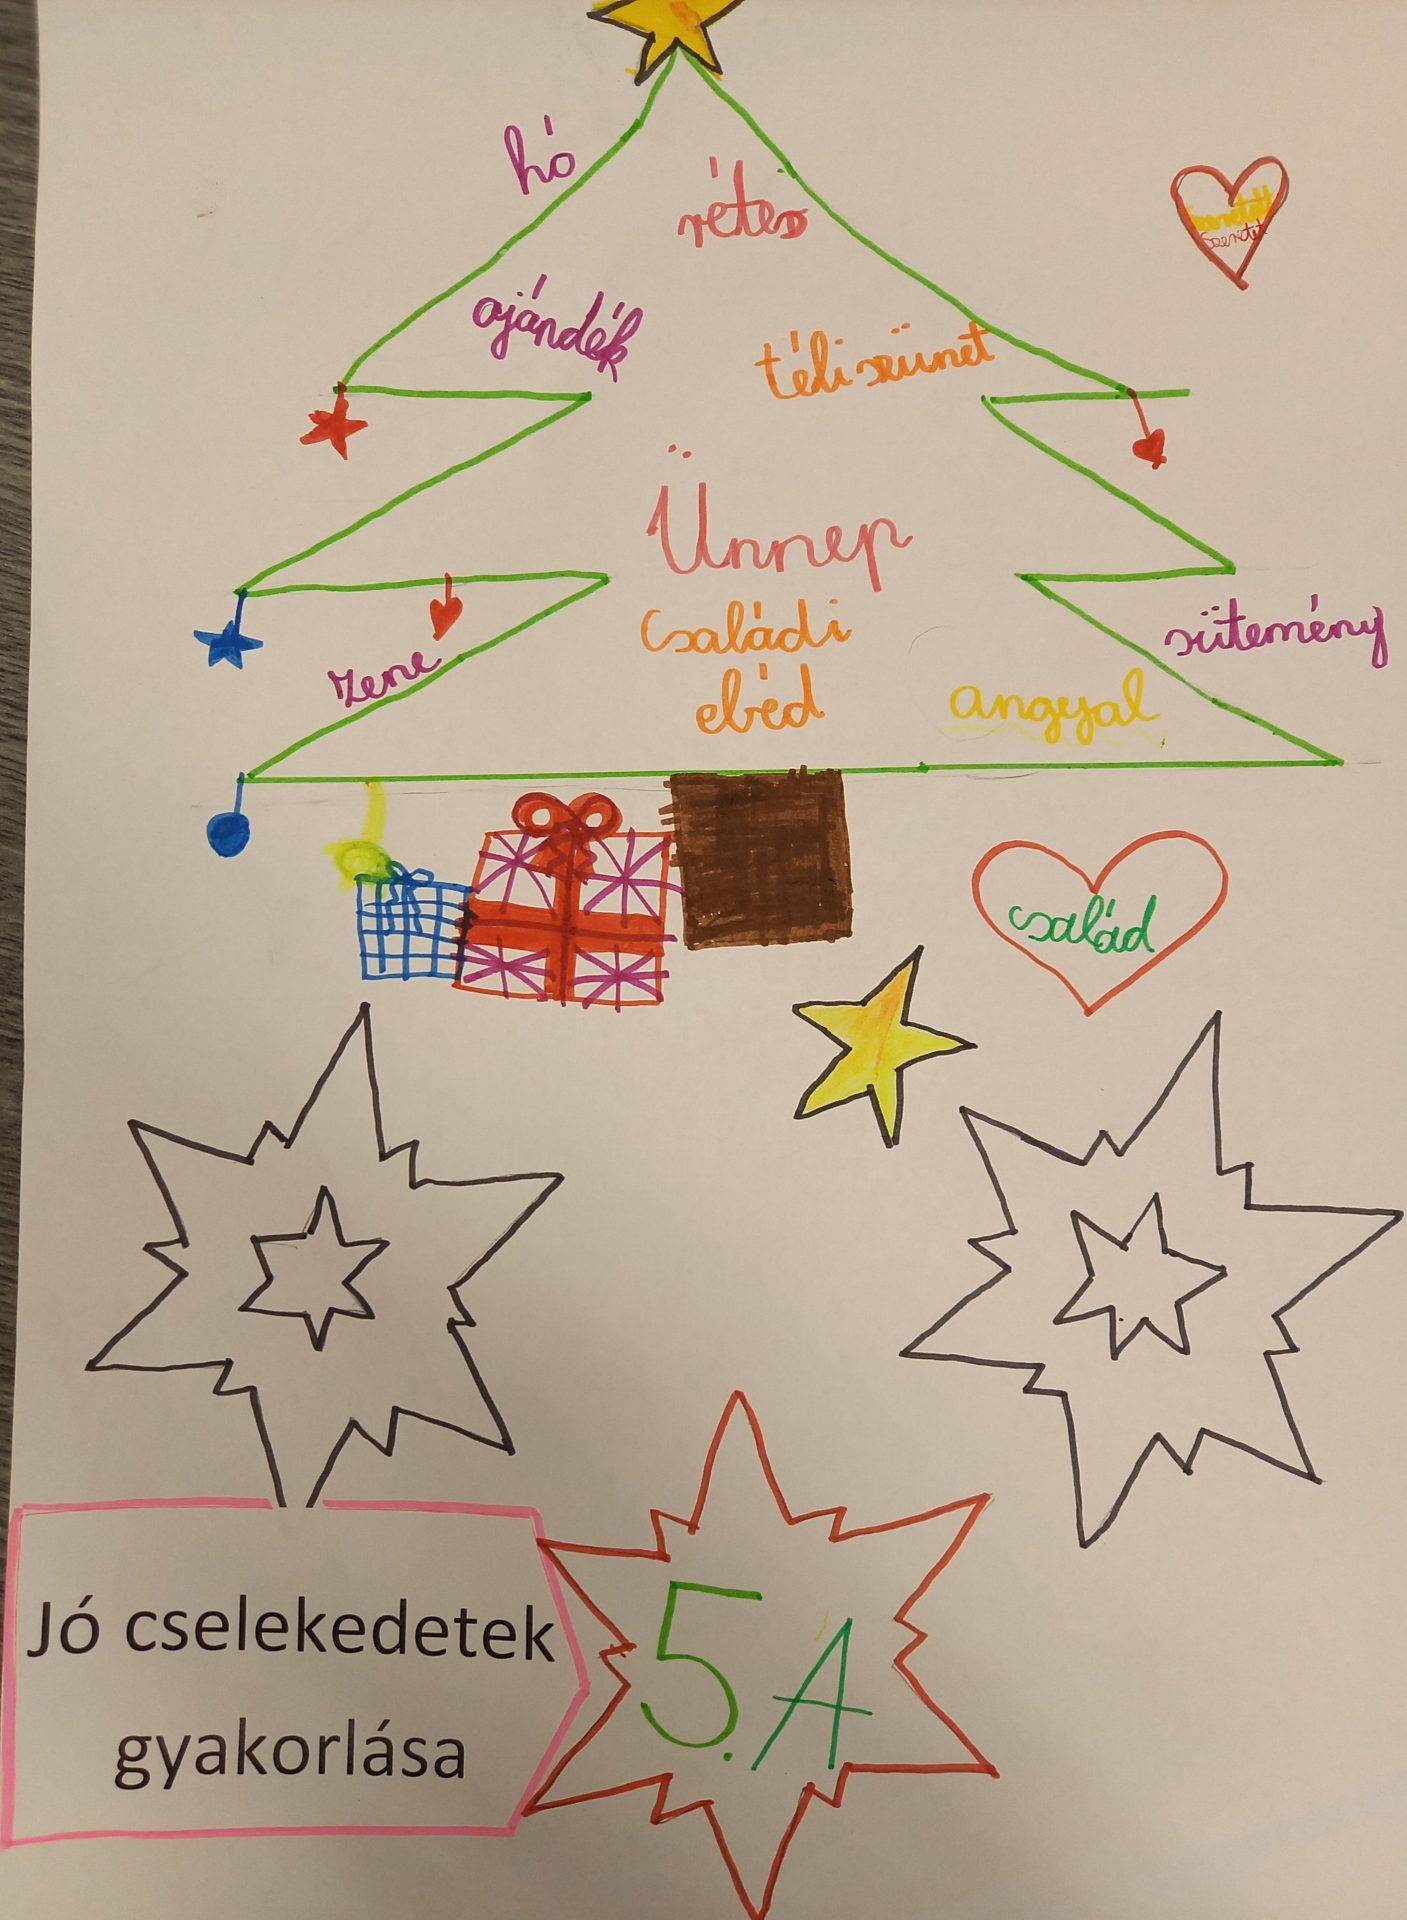 hó
rétes
szeretet
ajándék
téli szünet
Ünnep
Családi
ebéd
zene
sütemény
angyal
család
Jó cselekedetek
gyakorlása
5. A